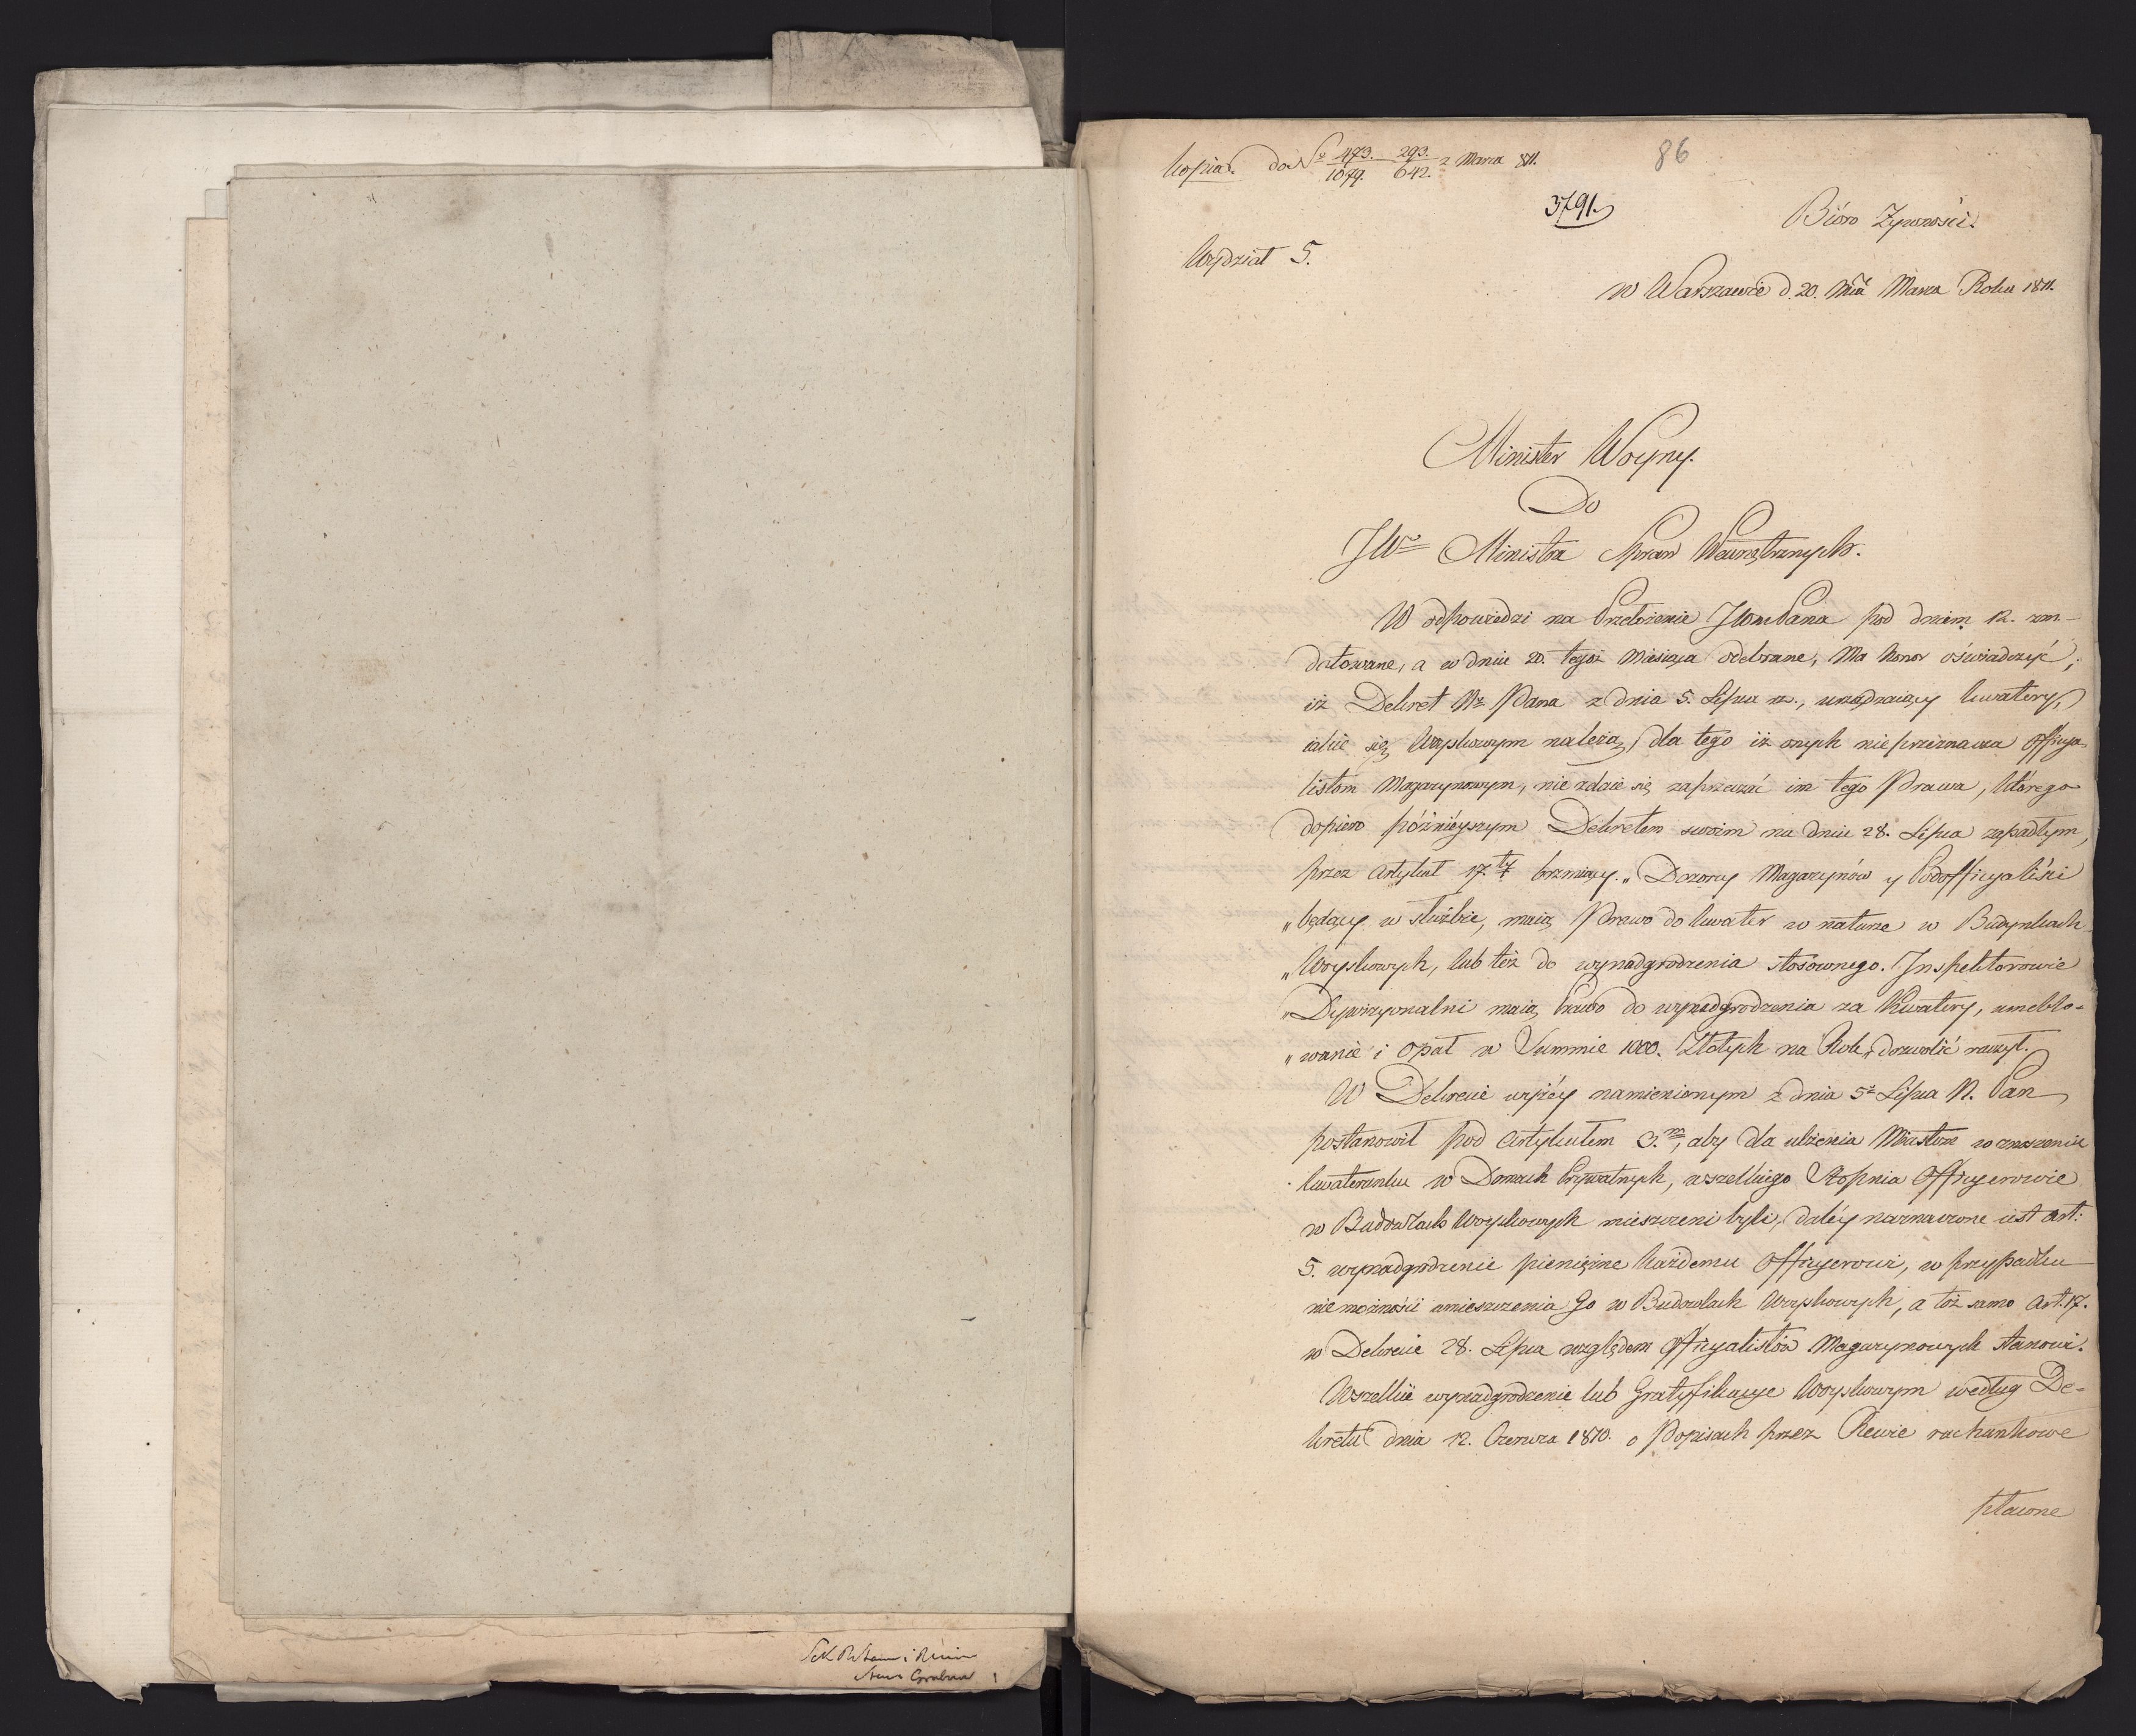 Kopia. do Nro 473. 293. z Marca 811.
1079. 642.
86
3791.
Bióro Zywności.
Wydział 5.
w Warszawie d. 20. Mca Marca Roku 1811.
Minister Woyny.
Do
JWo Ministra Spraw Wewnętrznych.
W odpowiedzi na Przełożenie JWm Pana pod dniem 12.
datowane, a w dniu 20. tegoż Miesiąca odebrane, Ma honor oświadczyć,
iż Dekret Nr Pana z dnia 5. Lipca urządzaiący kwatery,
iakie się Woyskowym należą, dla tego iż onych nieprzeznacza Officya-
listom Magazynowym, nie zdaie się zaprzeczać im tego Prawa, którego
dopiero późnieyszym Dekretem swoim na dniu 28. Lipca zapadłym,
przez Artykuł 17ty brzmiący. „Dozorcy Magazynów y Podofficyaliści
„będący w służbie, maią Prawo do kwater w naturze w Budynkach
„Woyskowych, lub też do wynadgrodzenia stosownego. Inspektorowie
„Dywizyonalni maią Prawo do wynadgrodzenia za Kwatery, umeblo-
„wanie i opał w Summie 1000. Złotych na Rok, dozwolić raczył.
W Dekrecie wyżéy namienionym z dnia 5go Lipca N. Pan
postanowił pod Artykułem 3.m, aby dla ulżenia Miastom w znoszeniu
kwaterunku w Domach Prywatnych, wszelkiego Stopnia Officyerowie
w Budowlach Woyskowych mieszczeni byli, daléy naznaczone iest Art:
5. wynadgrodzenie pieniężne każdemu Officyerowi, w przypadku
niemożności umieszczenia Go w Budowlach Woyskowych, a toż samo Art. 17.
w Dekrecie 28. Lipca względem Officyalistów Magazynowych stanowi.
Wszelkie wynadgrodzenie lub Gratyfikacye Woyskowym według De-
kretu dnia 12. Czerwca 1810. o Popisach przez Rewie rachunkowe
płacone